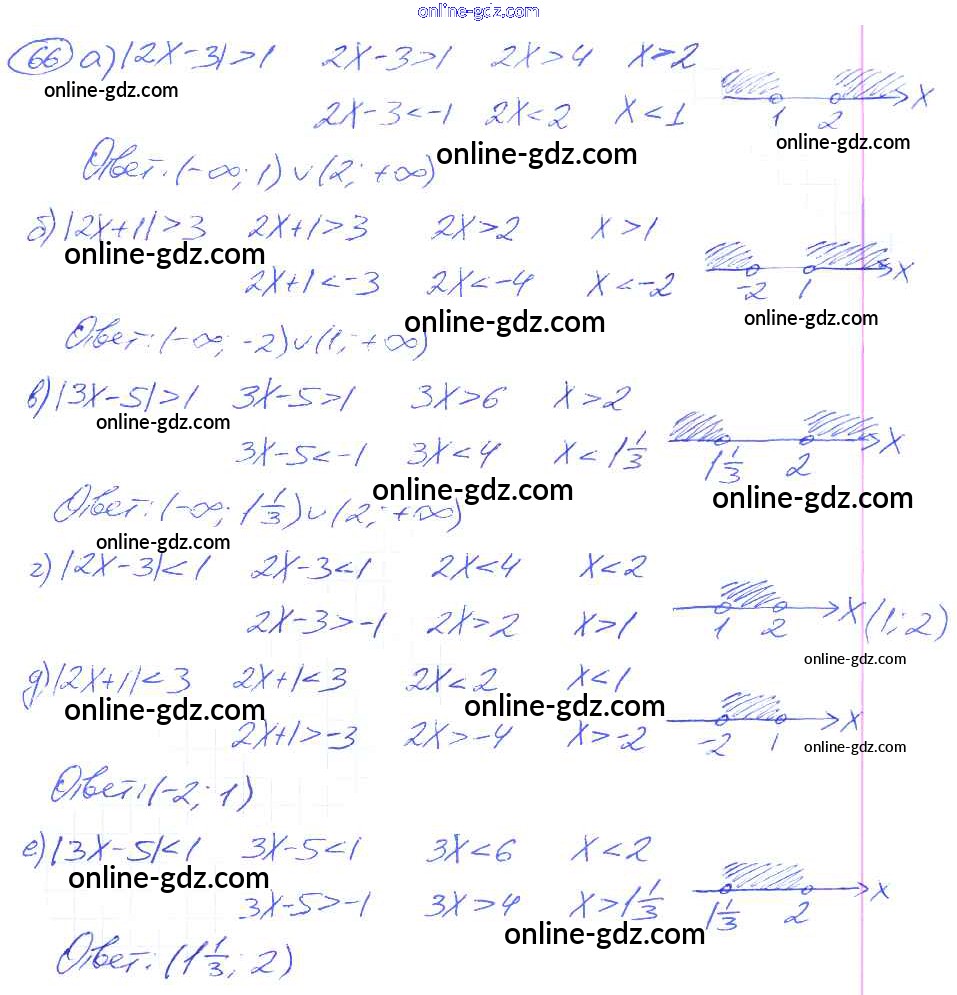 online-gdz.com
66 а) |2x-3|>1 2x-3>1 2x>4 x>2
online-gdz.com
2x-3<-1 2x<2 x<1 1 2 x
online-gdz.com
online-gdz.com
Ответ: (-∞; 1) ∪ (2; +∞)
б) |2x+1|>3 2x+1>3 2x>2 x>1
online-gdz.com
2x+1<-3 2x<-4 x<-2 -2 1 x
online-gdz.com
online-gdz.com
Ответ: (-∞; -2) ∪ (1; +∞)
в) |3x-5|>1 3x-5>1 3x>6 x>2
online-gdz.com
3x-5<-1 3x<4 x<1 1/3 1 1/3 2 x
online-gdz.com
online-gdz.com
Ответ: (-∞; 1 1/3) ∪ (2; +∞)
online-gdz.com
г) |2x-3|<1 2x-3<1 2x<4 x<2
2x-3>-1 2x>2 x>1 1 2 x (1; 2)
online-gdz.com
д) |2x+1|<3 2x+1<3 2x<2 x<1
online-gdz.com
online-gdz.com
2x+1>-3 2x>-4 x>-2 -2 1 x
online-gdz.com
Ответ: (-2; 1)
е) |3x-5|<1 3x-5<1 3x<6 x<2
online-gdz.com
3x-5>-1 3x>4 x>1 1/3 1 1/3 2 x
online-gdz.com
Ответ: (1 1/3; 2)